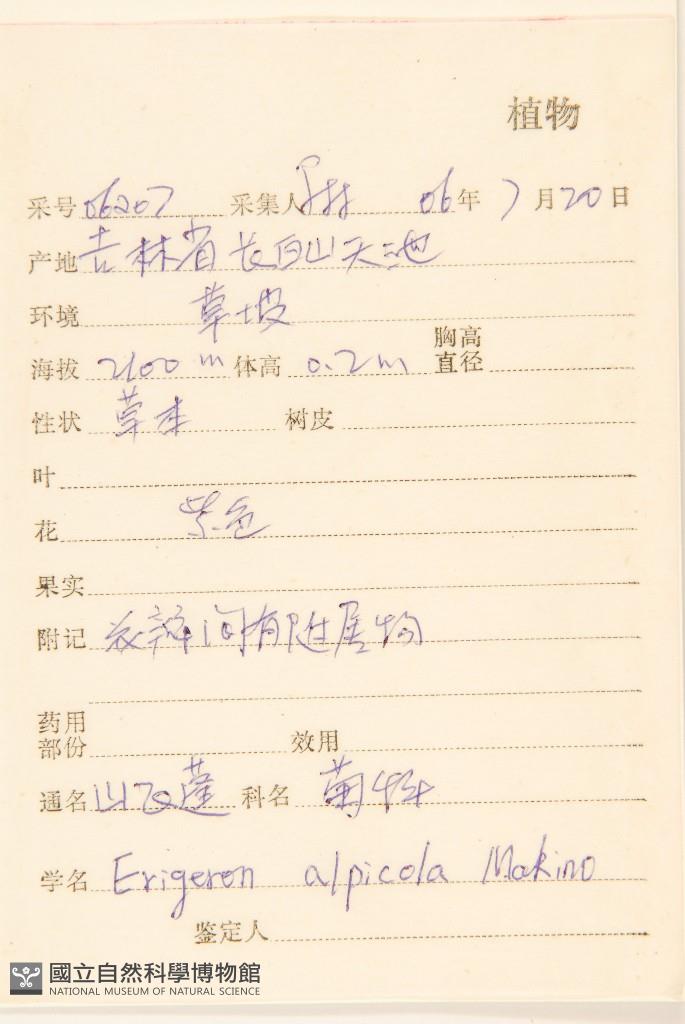 植物
采号 06207 采集人 06年 7月20日
产地 吉林省长白山天池
环境 草坡
海拔 2100 m 体高 0.2 m 胸高直径
性状 草本 树皮
叶
花 紫色
果实
附记 花瓣间有附属物
药用部份 效用
通名 山飞蓬 科名 菊科
学名 Erigeron alpicola Makino
鉴定人
國立自然科學博物館
NATIONAL MUSEUM OF NATURAL SCIENCE